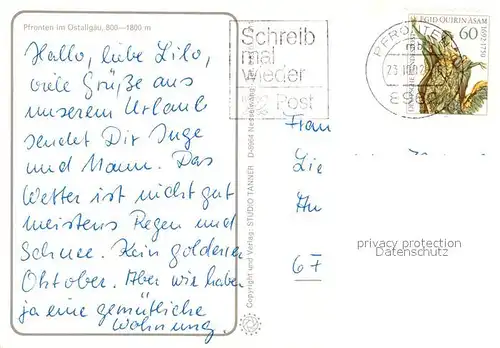 Pfronten im Ostallgäu, 800—1800 m
Hallo, liebe Lilo,
viele Grüße aus
unserem Urlaub
sendet Dir Inge
und Mann. Das
Wetter ist nicht gut
meistens Regen und
Schnee. Kein goldener
Oktober. Aber wir haben
ja eine gemütliche
Wohnung.
Copyright und Verlag: STUDIO TANNER D-8964 Nesselwang
Schreib
mal
wieder
Post
PFRONTEN
896
EGID QUIRIN ASAM 1692-1750
60
DEUTSCHE BUNDESPOST
Frau
Lie
An
67
privacy protection
Datenschutz